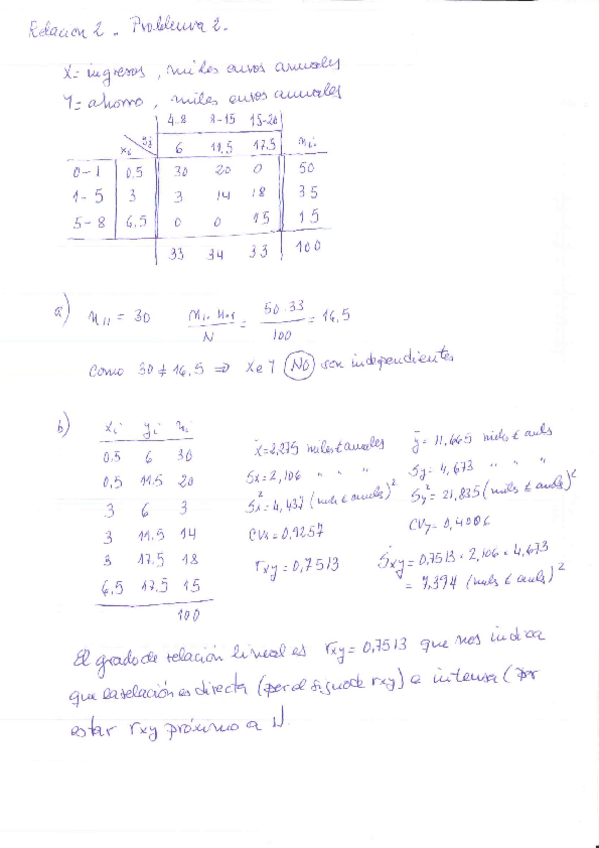 Relacion 2. Problema 2.
X = ingresos, miles euros anuales
Y = ahorro, miles euros anuales
4-8 8-15 15-20
xi yj 6 11,5 17,5 ni.
0-1 0,5 30 20 0 50
1-5 3 3 14 18 35
5-8 6,5 0 0 15 15
33 34 33 100
a) n11 = 30 n1. n.1 / N = 50·33 / 100 = 16,5
Como 30 ≠ 16,5 ⇒ X e Y NO son independientes
b) xi yi ni
0,5 6 30
0,5 11,5 20
3 6 3
3 11,5 14
3 17,5 18
6,5 17,5 15
100
x̄ = 2,275 miles € anuales ȳ = 11,665 miles € anuls
Sx = 2,106 " " " Sy = 4,673 " " "
Sx² = 4,437 (miles € anuls)² Sy² = 21,835 (miles € anuls)²
CVx = 0,9257 CVy = 0,4006
rxy = 0,7513 Sxy = 0,7513 · 2,106 · 4,673
= 7,394 (miles € anuls)²
El grado de relación lineal es rxy = 0,7513 que nos indica
que la relación es directa (por el signo de rxy) e intensa (por
estar rxy próximo a 1).